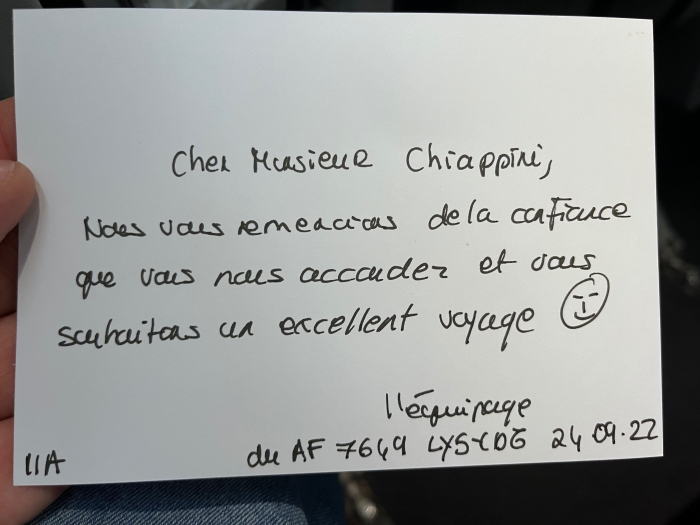 Cher Monsieur Chiappini,
Nous vous remercions de la confiance
que vous nous accordez et vous
souhaitons un excellent voyage
L'équipage
du AF 7649 LYS-CDG 24.09.22
11A